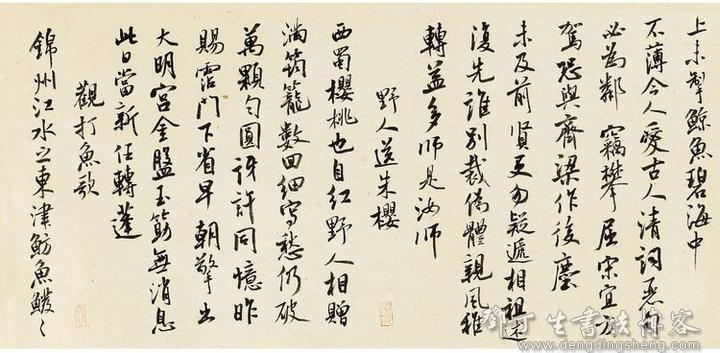 上未掣鯨魚碧海中
不薄今人愛古人清詞麗句
必為鄰竊攀屈宋宜方
駕恐與齊梁作後塵
未及前賢更勿疑遞相祖述
復先誰別裁偽體親風雅
轉益多師是汝師
野人送朱櫻
西蜀櫻桃也自紅野人相贈
滿筠籠數回細寫愁仍破
萬顆勻圓訝許同憶昨
賜霑門下省早朝擎出
大明宮金盤玉筯無消息
此日嘗新任轉蓬
觀打魚歌
錦州江水之東津魴魚鱍〻
鄧丁生書法博客
www.dengdingsheng.com